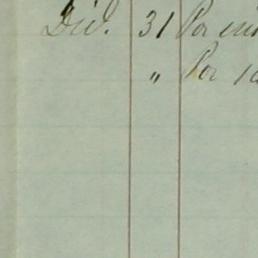 Div. 31 Por
" Por